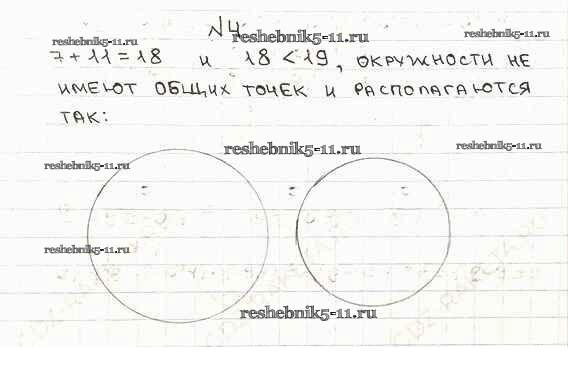 №4
reshebnik5-11.ru reshebnik5-11.ru reshebnik5-11.ru
7 + 11 = 18 и 18 < 19, ОКРУЖНОСТИ НЕ
ИМЕЮТ ОБЩИХ ТОЧЕК И РАСПОЛАГАЮТСЯ
ТАК:
reshebnik5-11.ru reshebnik5-11.ru
reshebnik5-11.ru
reshebnik5-11.ru
reshebnik5-11.ru